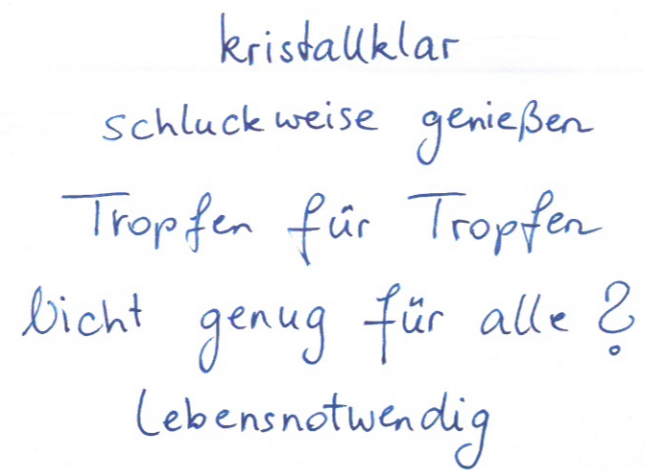 kristallklar
schluckweise genießen
Tropfen für Tropfen
Nicht genug für alle?
Lebensnotwendig